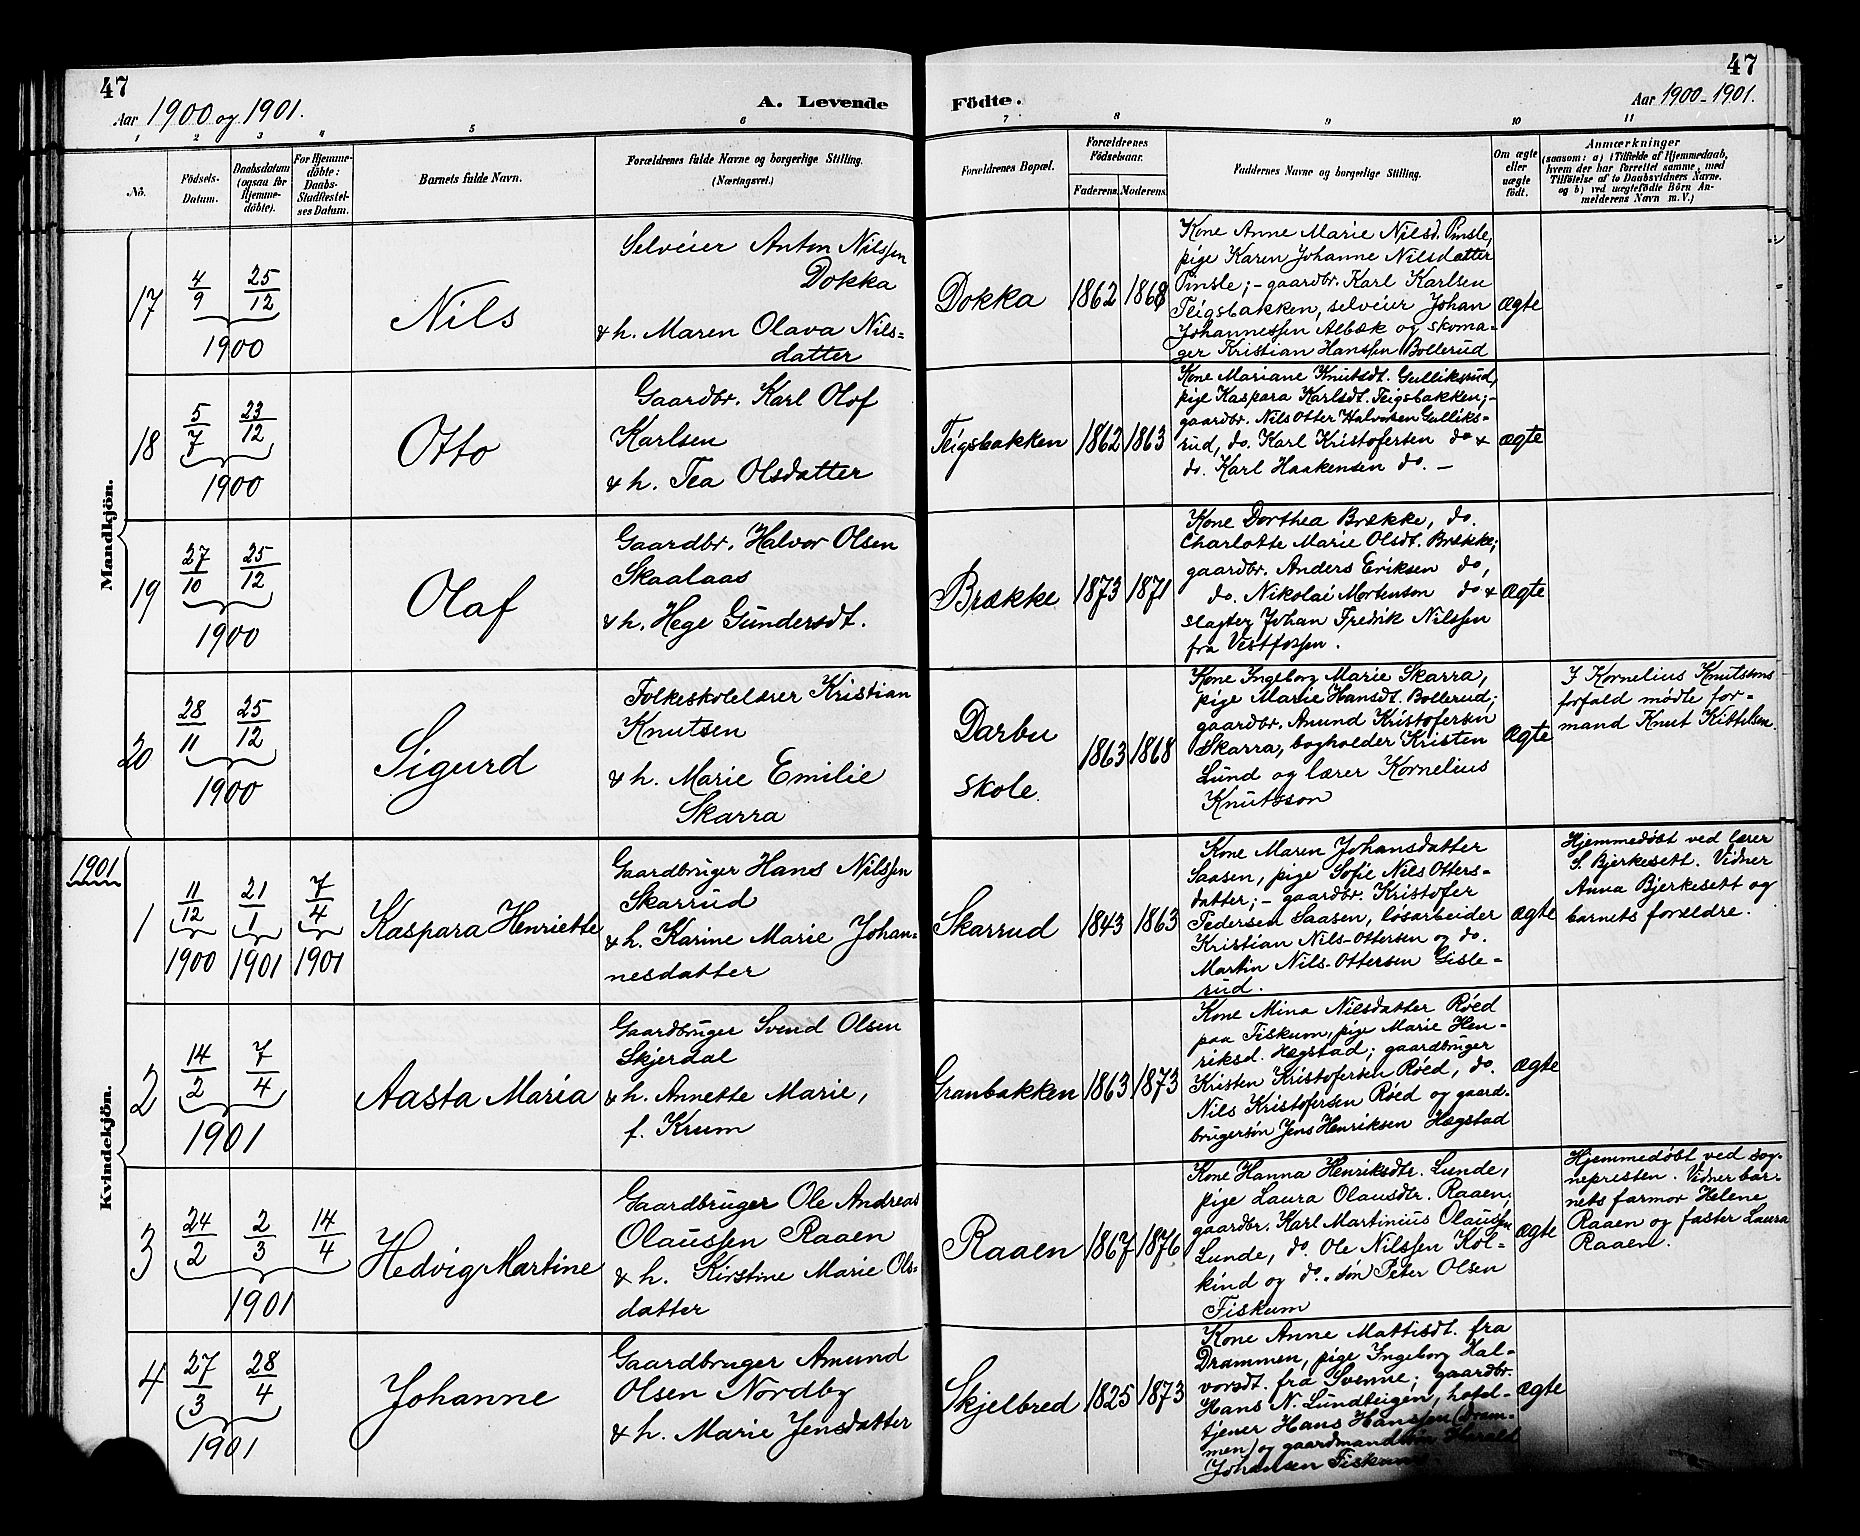 47
Aar 1900 og 1901.
A. Levende
Födte.
47
Aar 1900-1901.
1 2 3 4 5 6 7 8 9 10 11
No.
Födsels-
Datum.
Daabsdatum
(ogsaa for
Hjemme-
døbte).
For Hjemme-
döbte:
Daabs-
Stadfæstel-
ses Datum.
Barnets fulde Navn.
Forældrenes fulde Navne og borgerlige Stilling.
(Næringsvei.)
Forældrenes Bopæl.
Forældrenes
Födselsaar.
Faderens. Moderens.
Faddernes Navne og borgerlige Stilling.
Om ægte
eller
uægte
födt.
Anmærkninger
(saasom: a) i Tilfælde af Hjemmedaab,
hvem der har forrettet samme, med
Tilföielse af to Daabsvidners Navne,
og b) ved uægtefödte Börn An-
melderens Navn m. V.)
Mandkjön.
17
4/9 25/12
1900
Nils
Selveier Anton Nilssen
Dokka
& h. Maren Olava Nils-
datter
Dokka
1862 1868
Kone Anne Marie Nilsd. Pinsle,
pige Karen Johanne Nilsdatter
Pinsle; - gaardbr. Karl Karlsen
Teigsbakken, selveier Johan
Johannessen Albæk og skoma-
ger Kristian Hanssen Bollerud
ægte
18
5/7 23/12
1900
Otto
Gaardbr. Karl Olof
Karlsen
& h. Tea Olsdatter
Teigsbakken
1862 1863
Kone Mariane Knutsdt. Gulliksrud,
pige Kaspara Karlsdt. Teigsbakken; -
gaardbr. Nils Otter Halvorsen Gulliks-
rud, do. Karl Kristofersen do &
do. Karl Haakensen do. -
ægte
19
27/10 25/12
1900
Olaf
Gaardbr. Halvor Olsen
Skaalaas
& h. Hege Gundersdt.
Brække
1873 1871
Kone Dorthea Brække, do.
Charlotte Marie Olsdt. Brække;
gaardbr. Anders Eriksen do,
do. Nikolai Mortenson do &
slagter Johan Fredrik Nilssen
fra Vestfossen.
ægte
20
28/11 25/12
1900
Sigurd
Folkeskolelærer Kristian
Knutsen
& h. Marie Emilie
Skarra
Darbu
skole.
1863 1868
Kone Ingeborg Marie Skarra,
pige Marie Hansdt. Bollerud;
gaardbr. Amund Kristofersen
Skarra, bogholder Kristen
Lund og lærer Kornelius
Knutsson
ægte
I Kornelius Knutssons
forfald mødte for-
mand Knut Kittelsen.
Kvindekjön.
1901
1
11/12 21/1 7/4
1900 1901 1901
Kaspara Henriette
Gaardbruger Hans Nilssen
Skarrud
& h. Karine Marie Johan-
nesdatter
Skarrud
1843 1863
Kone Maren Johansdatter
Saasen, pige Sofie Nils Otters-
datter; - gaardbr. Kristofer
Pedersen Saasen, løsarbeider
Kristian Nils-Ottersen og do.
Martin Nils-Ottersen Gisle-
rud.
ægte
Hjemmedøbt ved lærer
S. Bjerkesett. Vidner
Anna Bjerkesett og
barnets forældre.
2
14/2 7/4
1901
Aasta Maria
Gaardbruger Svend Olsen
Skjerdal
& h. Annette Marie,
f. Krum
Granbakken
1863 1873
Kone Mina Nilsdatter Røed
paa Fiskum, pige Marie Hen-
riksd. Hægstad; gaardbruger
Kristen Kristofersen Røed, do.
Nils Kristofersen Røed og gaard-
brugersøn Jens Henriksen Hægstad
ægte
3
24/2 2/3 14/4
1901
Hedvig Martine
Gaardbruger Ole Andreas
Olaussen Raaen
& h. Kirstine Marie Ols-
datter
Raaen
1867 1876
Kone Hanna Henriksdtr. Lunde,
pige Laura Olausdtr. Raaen;
gaardbr. Karl Martinius Olaussen
Lunde, do. Ole Nilssen Kol-
kind og do. søn Peter Olsen
Fiskum
ægte
Hjemmedøbt ved sog-
nepresten. Vidner bar-
nets farmor Helene
Raaen og faster Laura
Raaen.
4
27/3 28/4
1901
Johanne
Gaardbruger Amund
Olsen Nordby
& h. Marie Jensdatter
Skjelbred
1825 1873
Kone Anne Mattisdt. fra
Drammen, pige Ingeborg Hal-
vorsdt. fra Svenne; gaardbr.
Hans N. Lundteigen, hotel-
tjener Hans Hanssen (Dram-
men) og gaardmandssøn Harald
Johansen Fiskum.
ægte